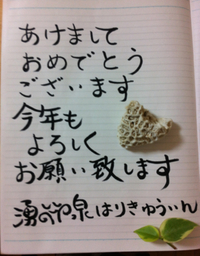 あけまして
おめでとう
ございます
今年も
よろしく
お願い致します
湧泉はりきゅういん